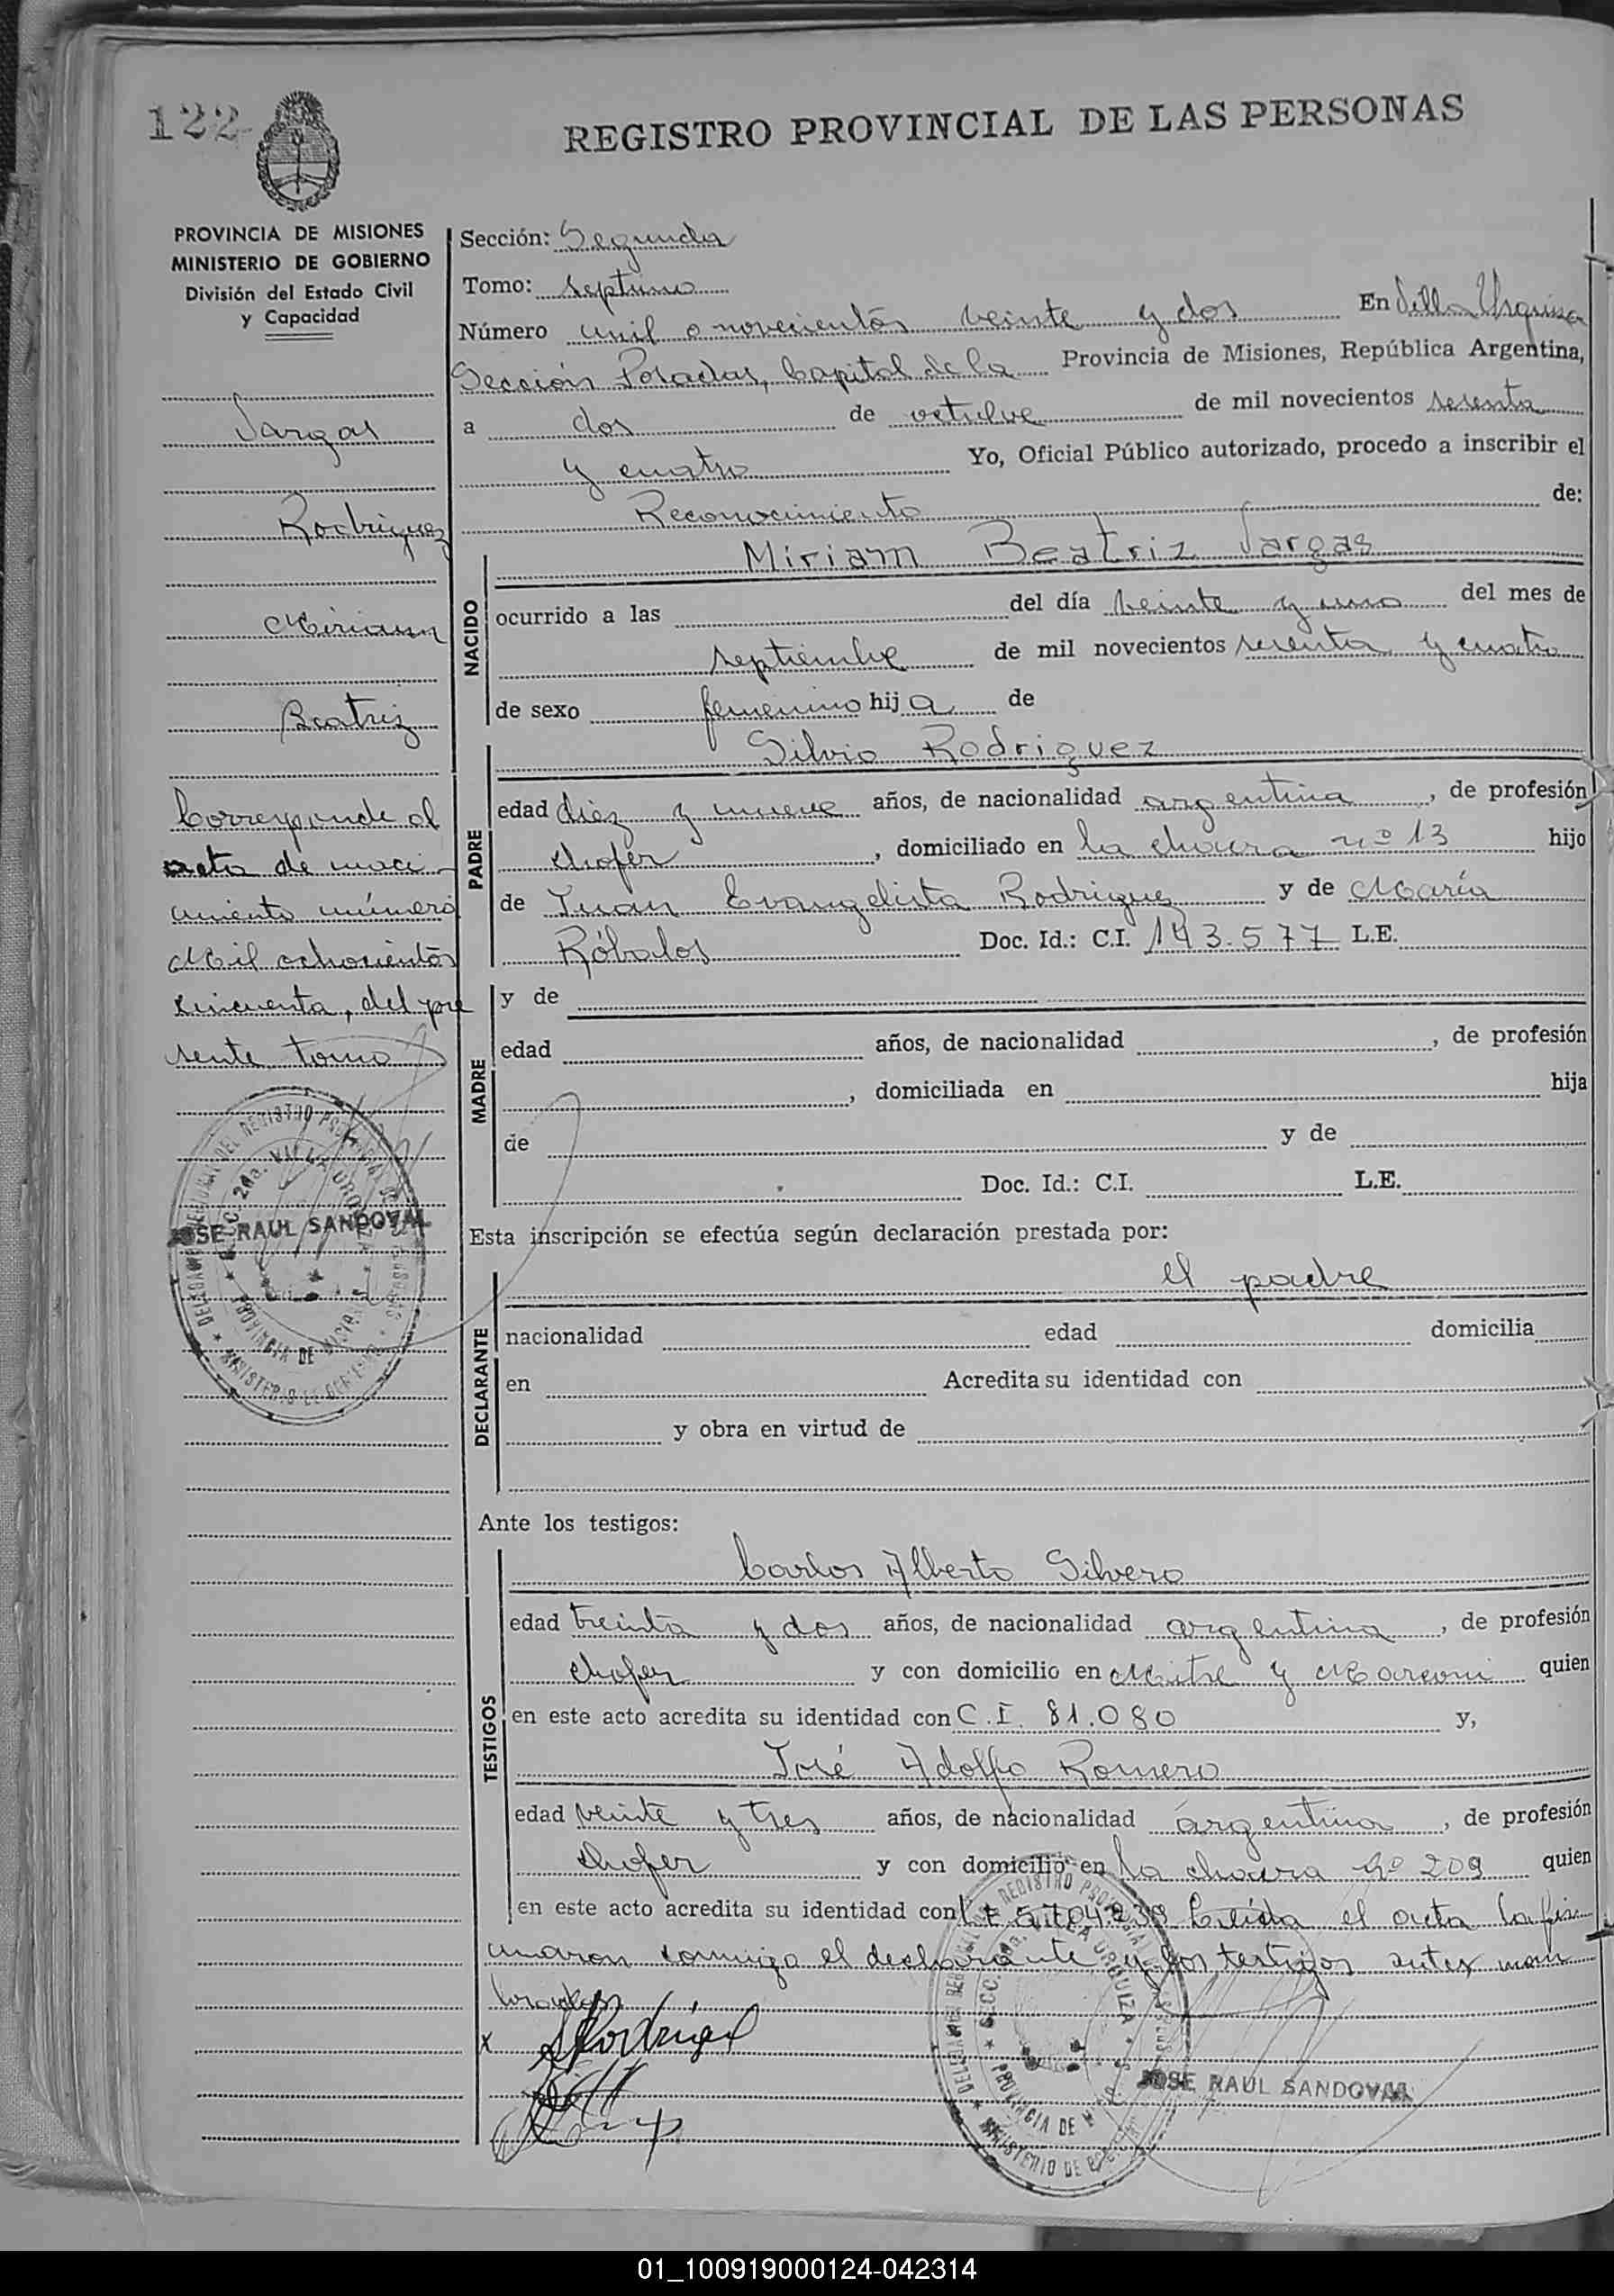 122
REGISTRO PROVINCIAL DE LAS PERSONAS
PROVINCIA DE MISIONES
MINISTERIO DE GOBIERNO
División del Estado Civil
y Capacidad
Vargas
Rodriguez
Miriam
Beatriz
Corresponde al
acta de naci-
miento número
Mil ochocientos
cincuenta, del pre
sente tomo
DELEGACION REGIONAL DEL REGISTRO PROVINCIAL DE LAS PERSONAS
SECC. 2da. VILLA URQUIZA
PROVINCIA DE MISIONES
MINISTERIO DE GOBIERNO
JOSE RAUL SANDOVAL
Sección: Segunda
Tomo: septimo
Número mil novecientos veinte y dos En Villa Urquiza
Sección Posadas, Capital de la Provincia de Misiones, República Argentina,
a dos de octubre de mil novecientos sesenta
y cuatro Yo, Oficial Público autorizado, procedo a inscribir el
Reconocimiento de:
NACIDO
Miriam Beatriz Vargas
ocurrido a las del día veinte y uno del mes de
septiembre de mil novecientos sesenta y cuatro
de sexo femenino hija de
PADRE
Silvio Rodriguez
edad diez y nueve años, de nacionalidad argentina, de profesión
chofer, domiciliado en la chacra nº 13 hijo
de Juan Evangelista Rodriguez y de María
Róbalos Doc. Id.: C.I. 143.577 L.E.
MADRE
y de
edad años, de nacionalidad , de profesión
, domiciliada en hija
de y de
Doc. Id.: C.I. L.E.
Esta inscripción se efectúa según declaración prestada por:
DECLARANTE
el padre
nacionalidad edad domicilia
en Acredita su identidad con
y obra en virtud de
Ante los testigos:
TESTIGOS
Carlos Alberto Silvero
edad treinta y dos años, de nacionalidad argentina, de profesión
chofer y con domicilio en Mitre y Marconi quien
en este acto acredita su identidad con C.I. 81.080 y,
José Adolfo Romero
edad veinte y tres años, de nacionalidad argentina, de profesión
chofer y con domicilio en la chacra Nº 209 quien
en este acto acredita su identidad con Leída el acta la fir
maron conmigo el declarante y los testigos antes nom
brados
x SRodriguez
DELEGACION REGIONAL DEL REGISTRO PROVINCIAL DE LAS PERSONAS
SECC. 2da. VILLA URQUIZA
PROVINCIA DE MISIONES
MINISTERIO DE GOBIERNO
JOSE RAUL SANDOVAL
01_100919000124-042314